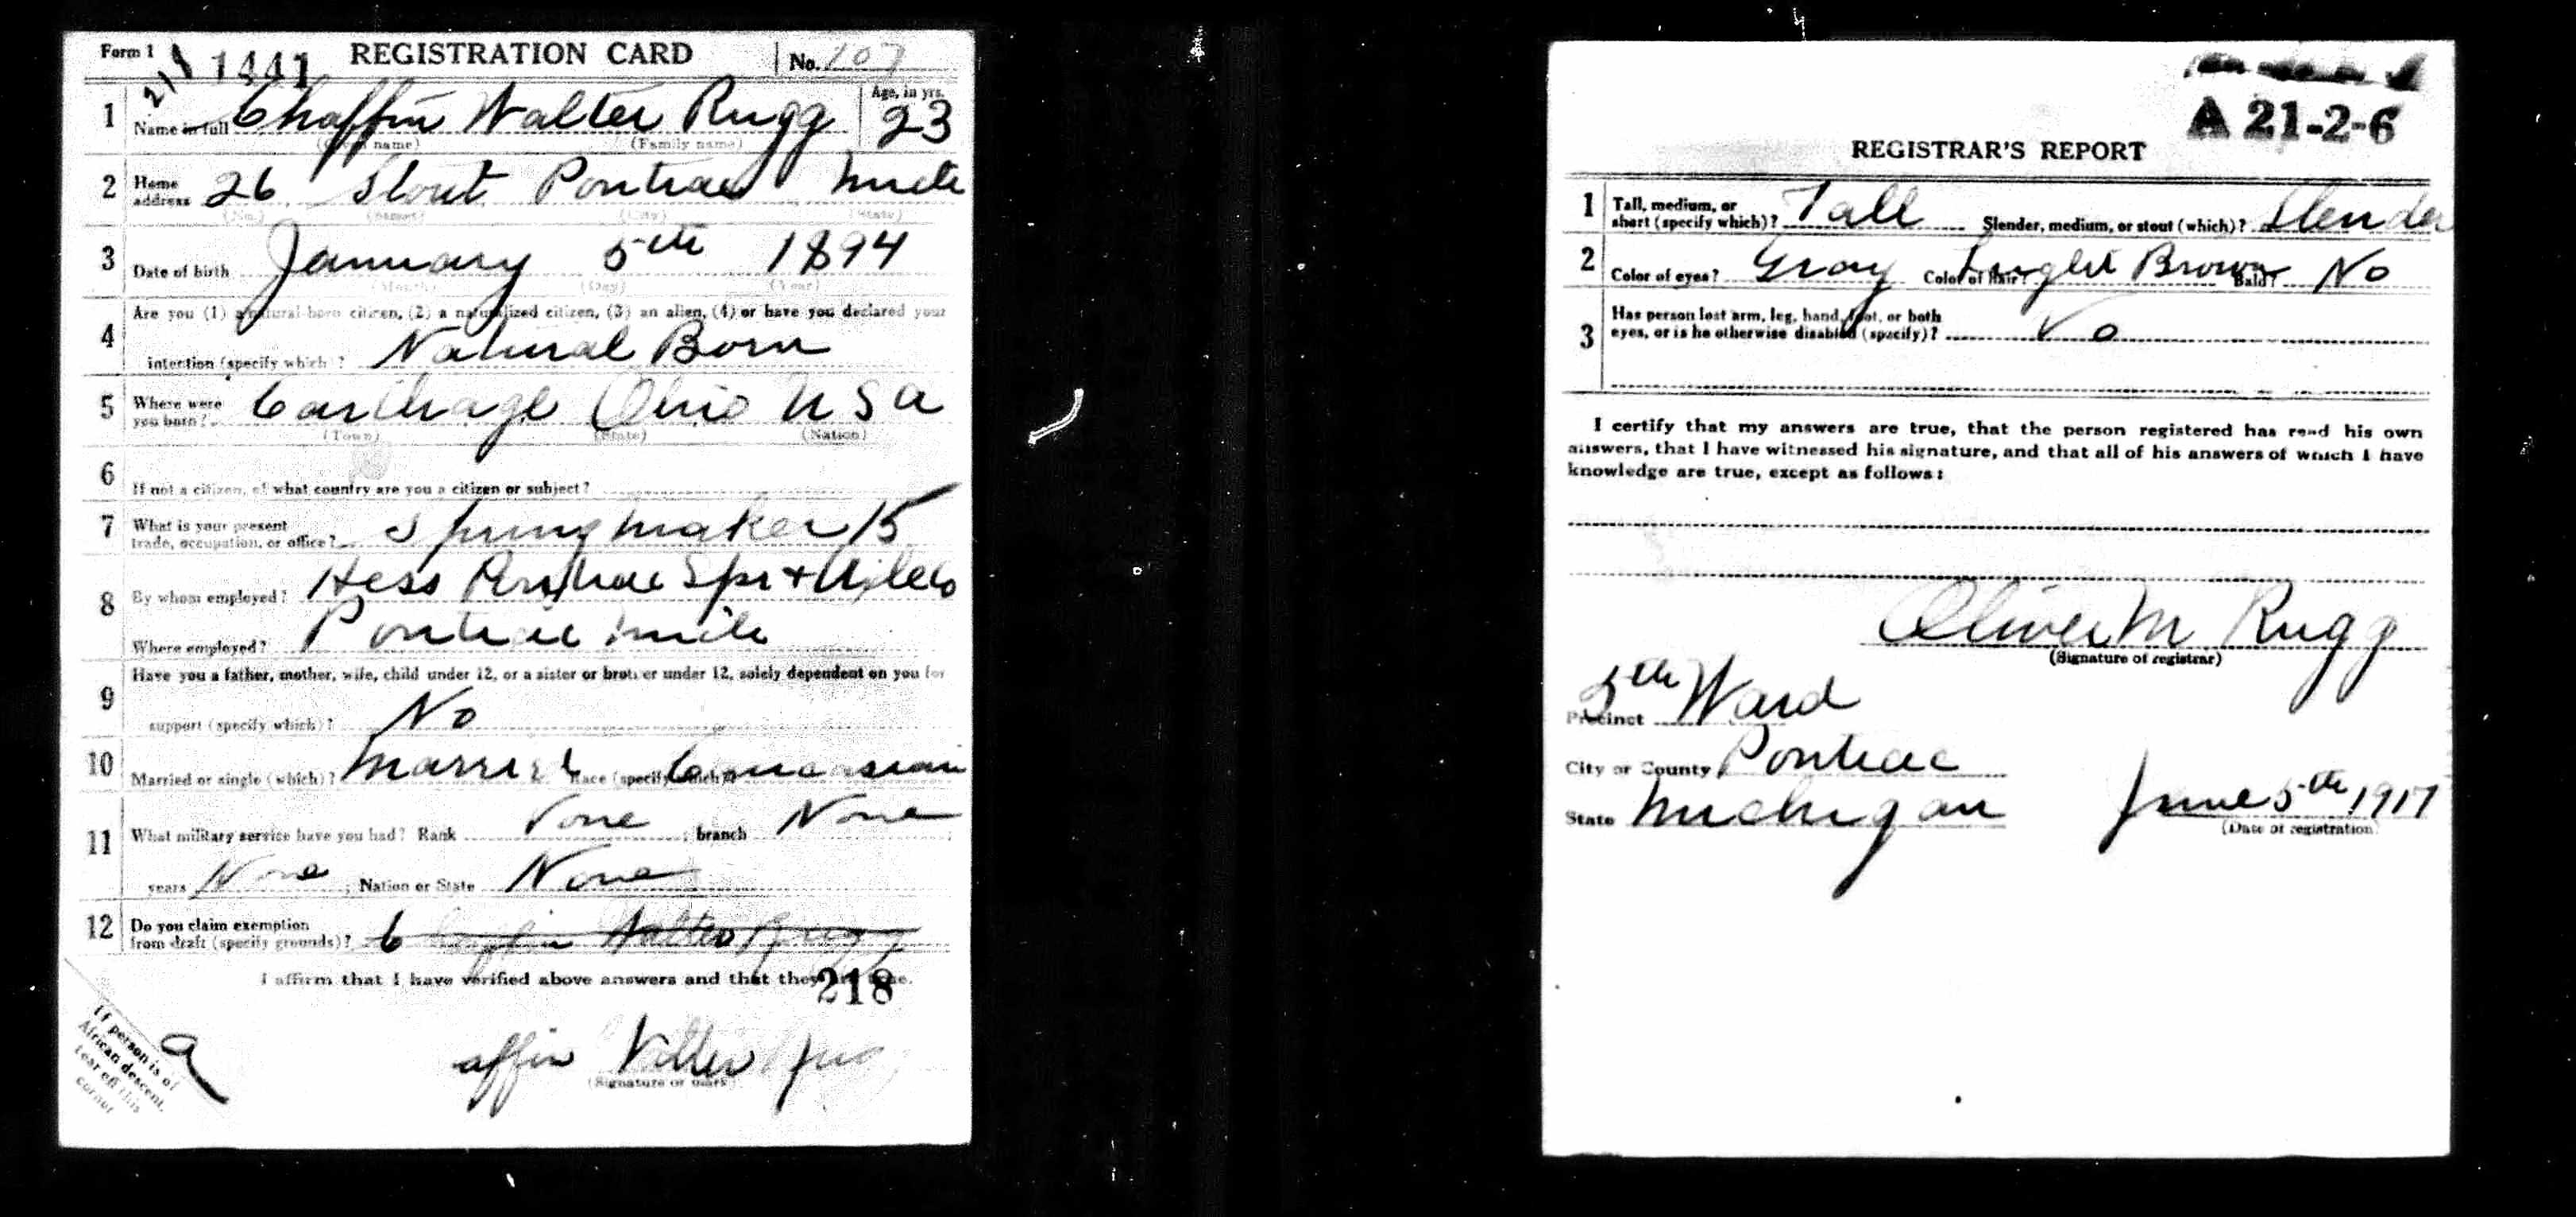 Form 1 REGISTRATION CARD No. 107
1441
1 Name in full Chaffin Walter Rugg Age, in yrs. 23
(Given name) (Family name)
2 Home address 26 Stout Pontiac Mich
(No.) (Street) (City) (State)
3 Date of birth January 5th 1894
(Month) (Day) (Year)
4 Are you (1) a natural-born citizen, (2) a naturalized citizen, (3) an alien, (4) or have you declared your
intention (specify which)? Natural Born
5 Where were you born? Carthage Ohio USA
(Town) (State) (Nation)
6 If not a citizen, of what country are you a citizen or subject?
7 What is your present
trade, occupation, or office? Spring maker 15
8 By whom employed? Hess Pontiac Spr +
Where employed? Pontiac Mich
9 Have you a father, mother, wife, child under 12, or a sister or brother under 12, solely dependent on you for
support (specify which)? No
10 Married or single (which)? Married Race (specify which)? Caucasian
11 What military service have you had? Rank None ; branch None ;
years None ; Nation or State None
12 Do you claim exemption
from draft (specify grounds)? Chaffin Walter Rugg
I affirm that I have verified above answers and that they are true.
218
affin Walter
(Signature or mark)
If person is of
African descent,
tear off this
corner
A 21-2-6
REGISTRAR'S REPORT
1 Tall, medium, or
short (specify which)? Tall Slender, medium, or stout (which)? Slender
2 Color of eyes? Gray Color of hair? Light Brown Bald? No
3 Has person lost arm, leg, hand, foot, or both
eyes, or is he otherwise disabled (specify)? No
I certify that my answers are true, that the person registered has read his own
answers, that I have witnessed his signature, and that all of his answers of which I have
knowledge are true, except as follows:
Oliver M Rugg
(Signature of registrar)
Precinct 5th Ward
City or County Pontiac
State Michigan June 5th 1917
(Date of registration)